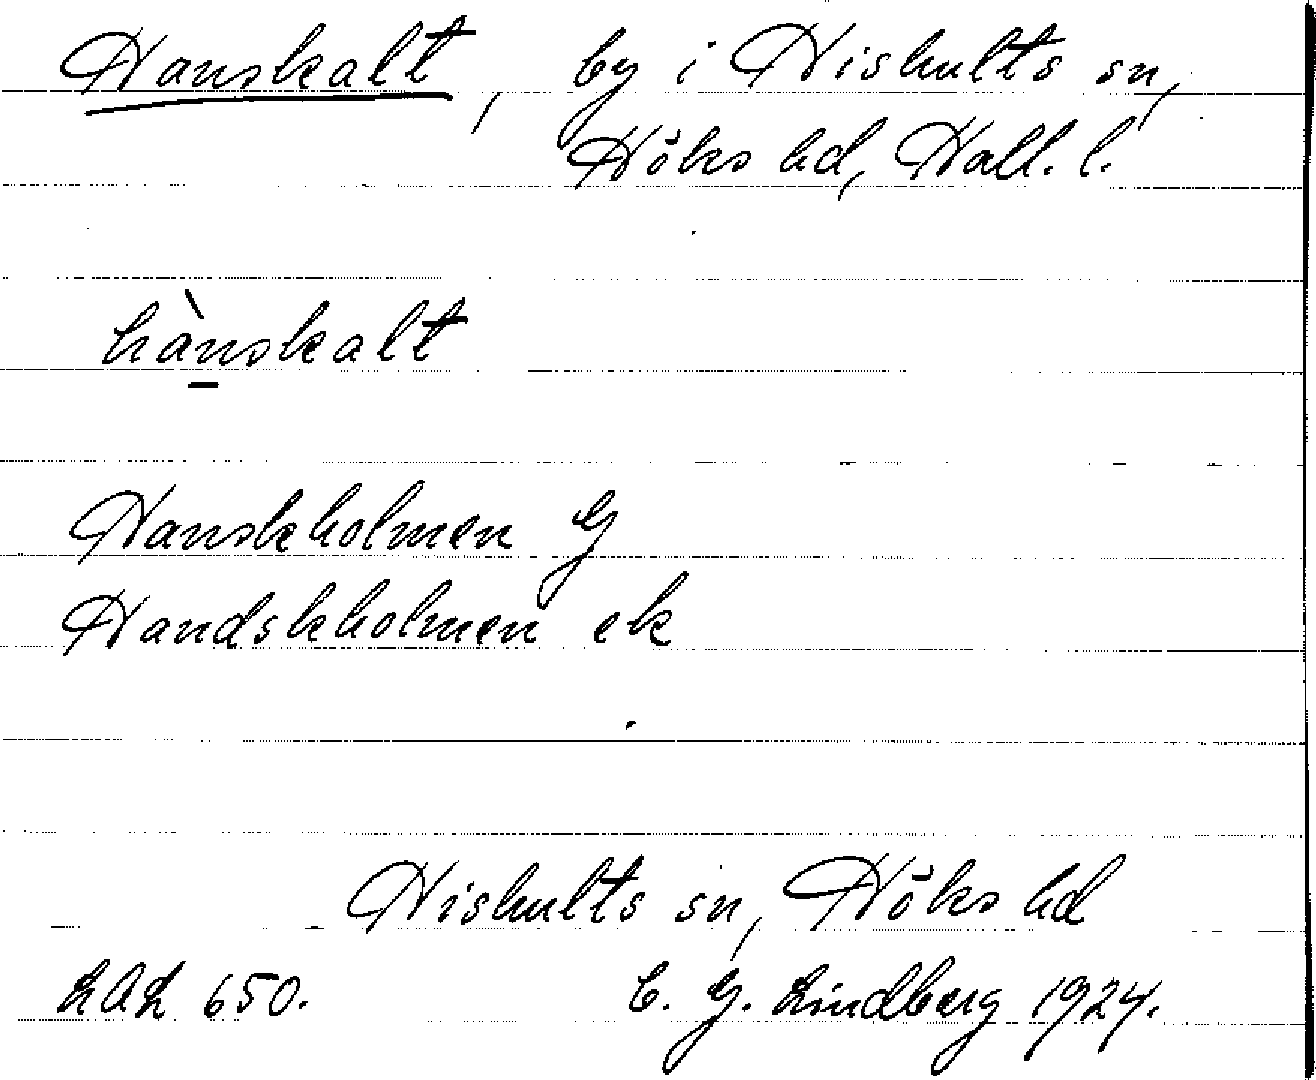 Hanskalt, by i Hishults sn,
Höks hd, Hall. l.
hànskalt
Hanskholmen G
Handskholmen ek
Hishults sn, Höks hd
LAL 650. C. G. Lindberg 1924.